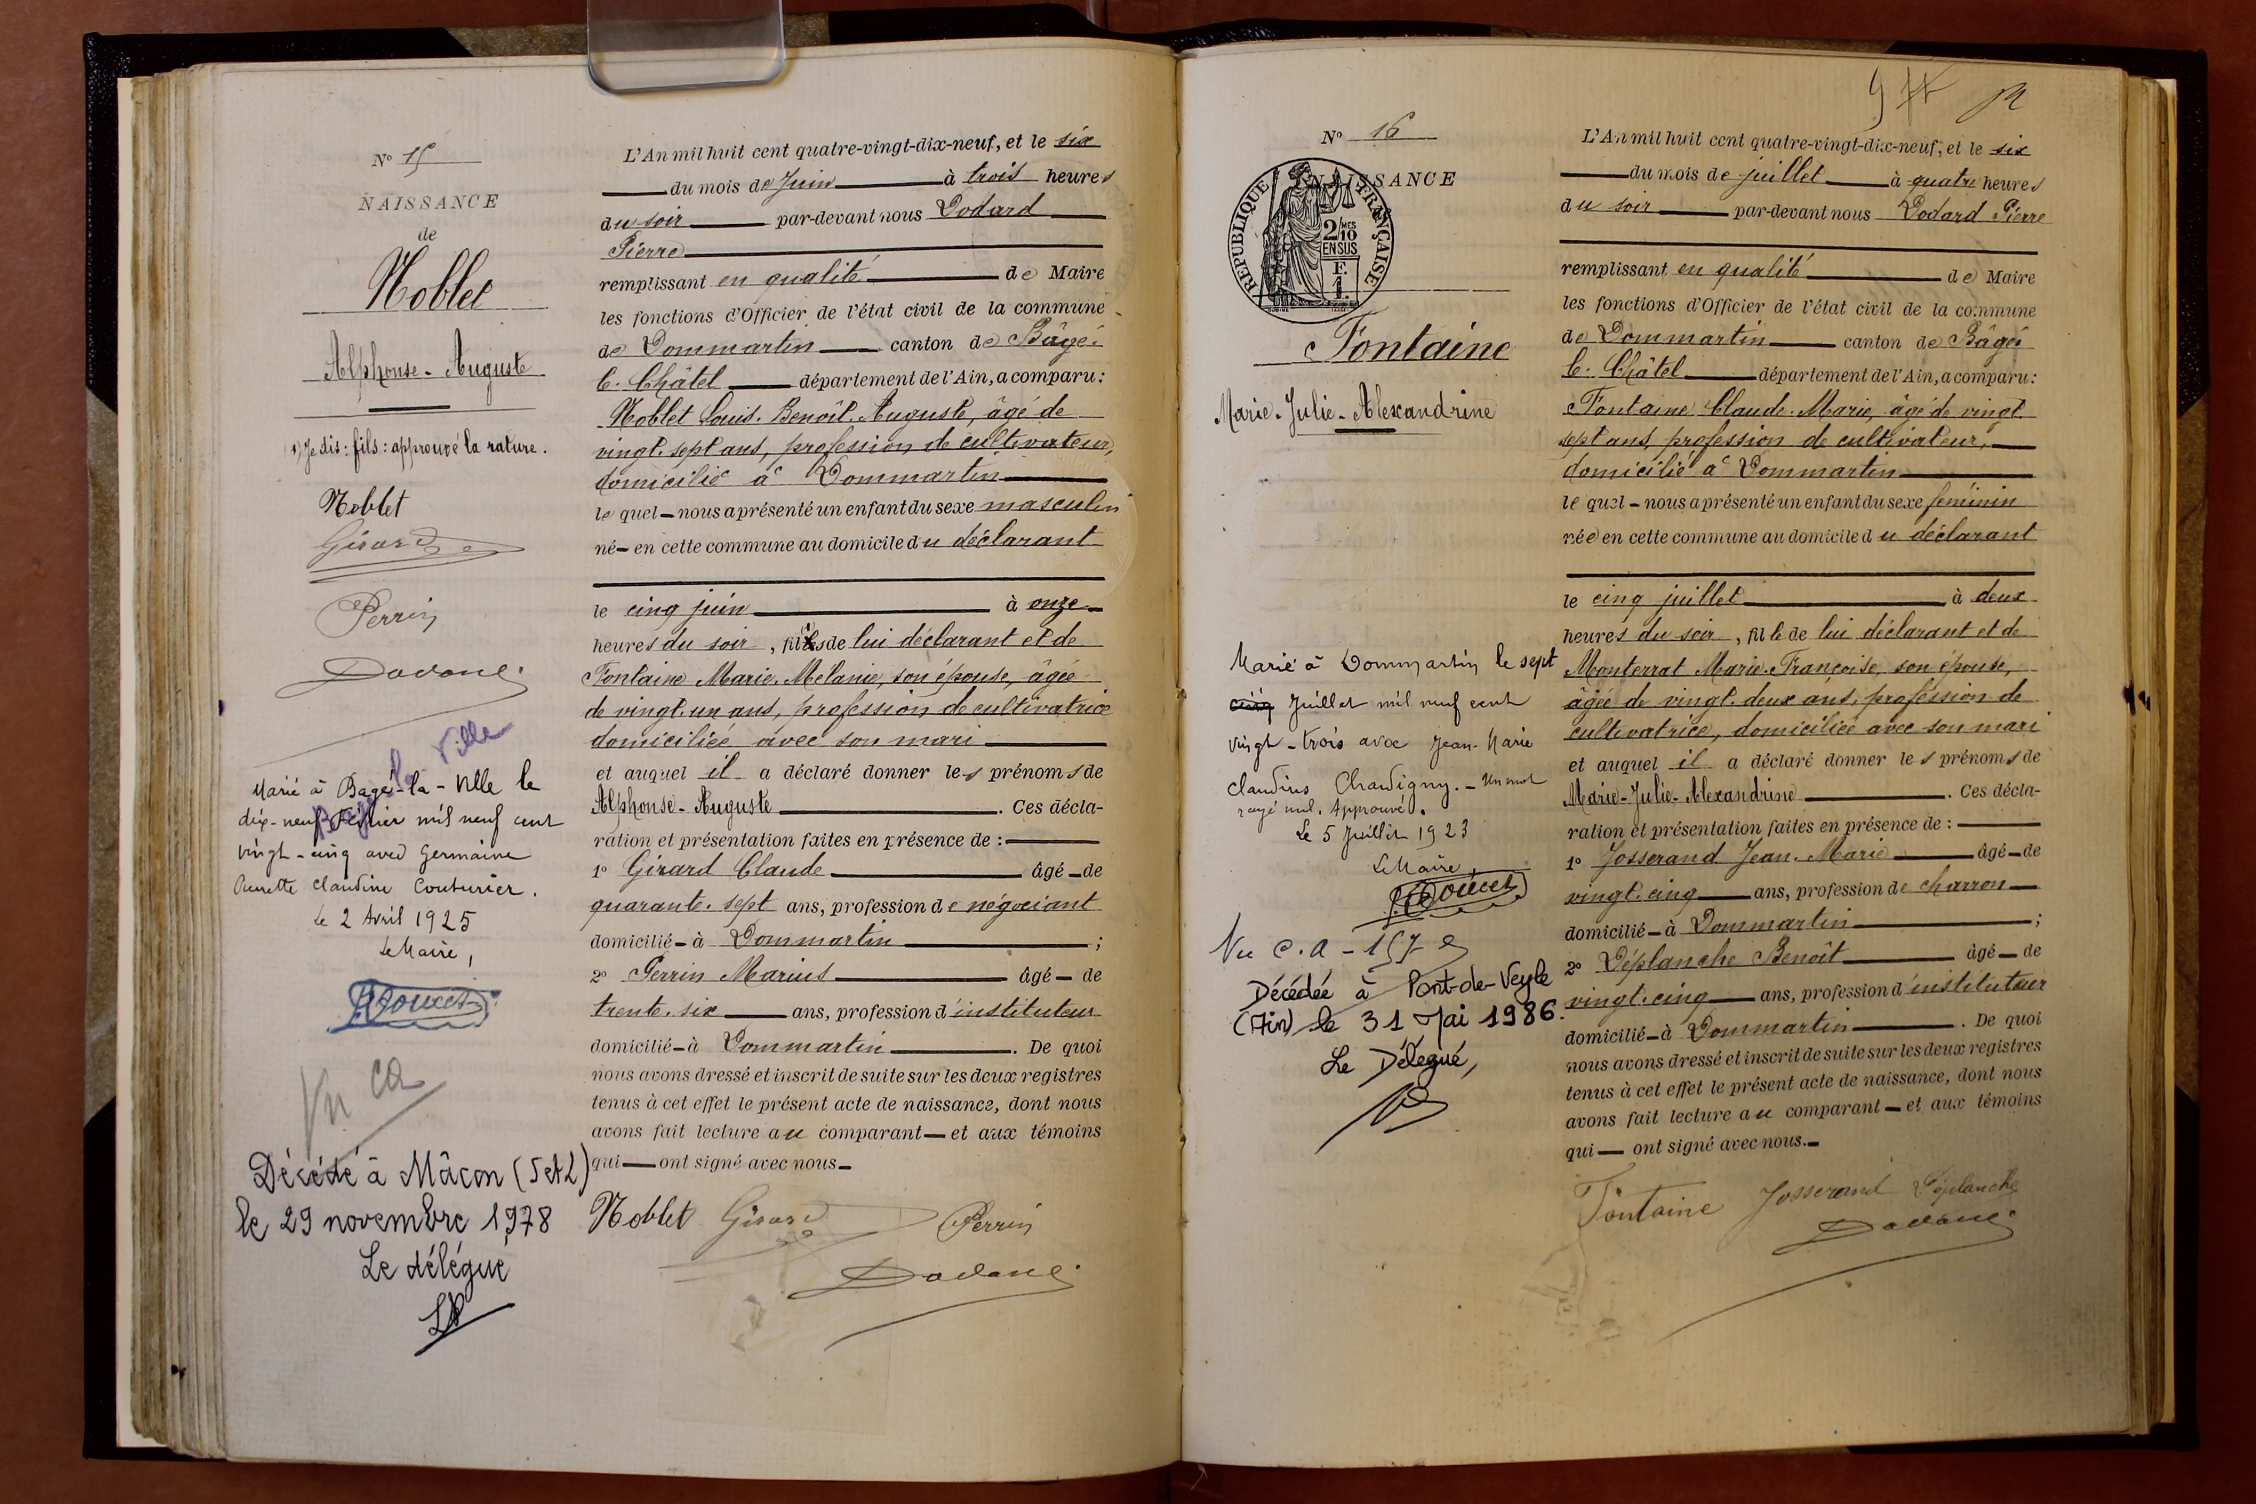 N° 15
NAISSANCE
de
Noblet
Alphonse-Auguste
1) Je dis: fils: approuvé la rature.
Noblet
Girard
Perrin
Dodard
Marié à Bagé-la-Ville le
dix-neuf Février mil neuf cent
vingt-cinq avec Germaine
Claudine Couturier.
Le 2 Avril 1925
Le Maire,
Doucet
Vu CA
Décédé à Mâcon (S et L)
le 29 novembre 1978
Le délégué
L'An mil huit cent quatre-vingt-dix-neuf, et le six
du mois de Juin à trois heures
du soir par-devant nous Dodard
Pierre
remplissant en qualité de Maire
les fonctions d'Officier de l'état civil de la commune
de Dommartin canton de Bâgé-
l. Châtel département de l'Ain, a comparu:
Noblet Louis. Benoît. Auguste, âgé de
vingt. sept ans, profession de cultivateur,
domicilié à Dommartin
le quel - nous a présenté un enfant du sexe masculin
né - en cette commune au domicile du déclarant
le cinq juin à onze
heures du soir, fils de lui déclarant et de
Fontaine Marie. Mélanie, son épouse, âgée
de vingt. un ans, profession de cultivatrice
domiciliée avec son mari
et auquel il a déclaré donner les prénoms de
Alphonse-Auguste. Ces décla-
ration et présentation faites en présence de :
1° Girard Claude âgé - de
quarante. sept ans, profession de négociant
domicilié - à Dommartin ;
2° Perrin Marius âgé - de
trente. six ans, profession d'instituteur
domicilié - à Dommartin. De quoi
nous avons dressé et inscrit de suite sur les deux registres
tenus à cet effet le présent acte de naissance, dont nous
avons fait lecture au comparant - et aux témoins
qui - ont signé avec nous -
Noblet Girard Perrin
Dodard
N° 16
NAISSANCE
REPUBLIQUE FRANÇAISE
2/10 MES
EN SUS
F.
1.
Fontaine
Marie-Julie-Alexandrine
Marié à Dommartin le sept
cinq Juillet mil neuf cent
vingt-trois avec Jean-Marie
Claudius Chavdigny. - Un mot
rayé nul. Approuvé.
Le 5 Juillet 1923
Le Maire
Doucet
Vu C.A - 157
Décédée à Pont-de-Veyle
(Ain) le 31 Mai 1986.
Le Délégué,
L'An mil huit cent quatre-vingt-dix-neuf, et le six
du mois de juillet à quatre heures
du soir par-devant nous Dodard Pierre
remplissant en qualité de Maire
les fonctions d'Officier de l'état civil de la commune
de Dommartin canton de Bâgé
l. Châtel département de l'Ain, a comparu:
Fontaine Claude. Marie, âgé de vingt.
sept ans, profession de cultivateur,
domicilié à Dommartin
le quel - nous a présenté un enfant du sexe féminin
née en cette commune au domicile du déclarant
le cinq juillet à deux
heures du soir, fille de lui déclarant et de
Monterrat Marie. Françoise, son épouse,
âgée de vingt. deux ans, profession de
cultivatrice, domiciliée avec son mari
et auquel il a déclaré donner les prénoms de
Marie-Julie-Alexandrine. Ces décla-
ration et présentation faites en présence de :
1° Josserand Jean. Marie âgé - de
vingt. cinq ans, profession de charron
domicilié - à Dommartin ;
2° Déplanche Benoît âgé - de
vingt. cinq ans, profession d'instituteur
domicilié - à Dommartin. De quoi
nous avons dressé et inscrit de suite sur les deux registres
tenus à cet effet le présent acte de naissance, dont nous
avons fait lecture au comparant - et aux témoins
qui - ont signé avec nous. -
Fontaine Josserand Déplanche
Dodard